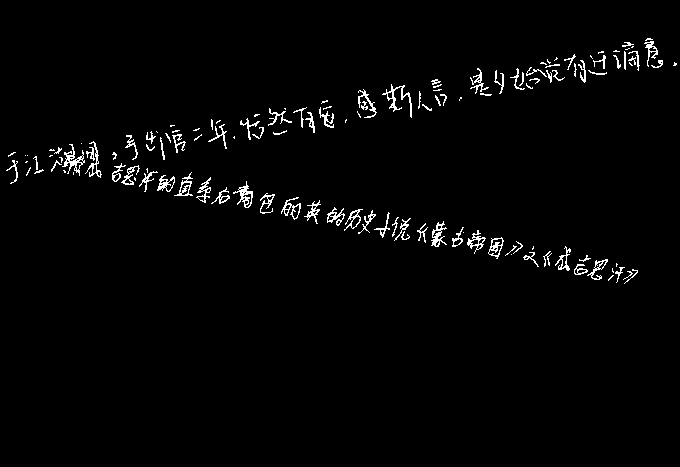 于江湖间。予出官二年,恬然自安,感斯人言,是夕始觉有迁谪意.
吉思汗的直系后裔包丽英的历史小说《蒙古帝国》之《成吉思汗》